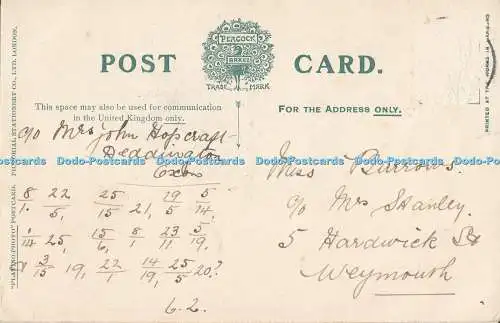 PEACOCK
BRAND
TRADE MARK
POST CARD.
This space may also be used for communication
in the United Kingdom only.
FOR THE ADDRESS ONLY.
"PLATINO-PHOTO" POSTCARD. PICTORIAL STATIONERY CO., LTD. LONDON.
PRINTED AT THE WORKS IN
c/o Mrs John Hopcraft
Deddington
Oxon
8/1. 22/5, 25/15 21, 19/5 5/14,
1/14 25, 15/6, 8/1 23/11 5/19,
3/15 19, 22/1 14/19, 25/5 20?
6.2.
Miss Burrows.
c/o Mrs Stanley.
5 Hardwick St
Weymouth
Dodo-Postcards Dodo-Postcards Dodo-Postcards Dodo-Postcards Dodo-Postcards Dodo-Postcards